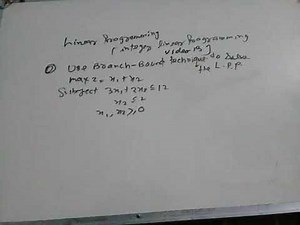 Linear Programming
[integer linear programming
video 13]
② Use Branch-Bound technique to solve
the L.P.P.
max z = x₁ + x₂
Subject 3x₁ + 2x₂ ≤ 12
x₂ ≤ 2
x₁, x₂ ≥, 0